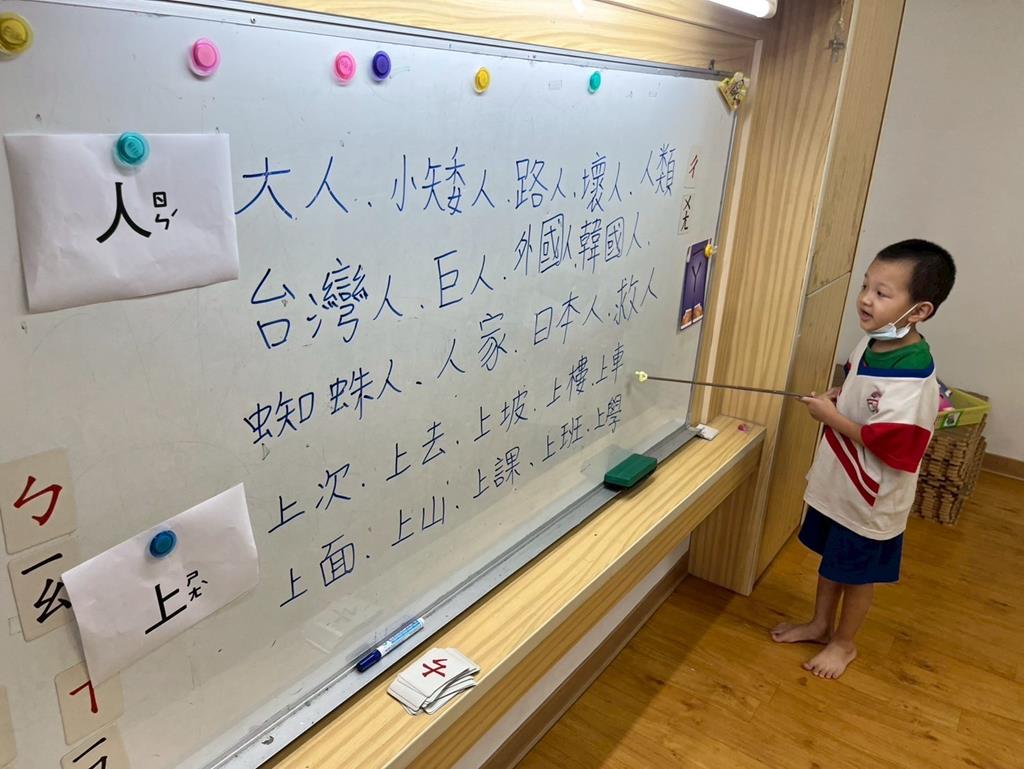 人ㄖㄣˊ
大人、小矮人、路人、壞人、人類
台灣人、巨人、外國人、韓國人、
蜘蛛人、人家、日本人、救人
上ㄕㄤˋ
上次、上去、上坡、上樓、上車
上面、上山、上課、上班、上學
ㄔ
ㄨㄤ
ㄅ
ㄧㄠ
ㄘ